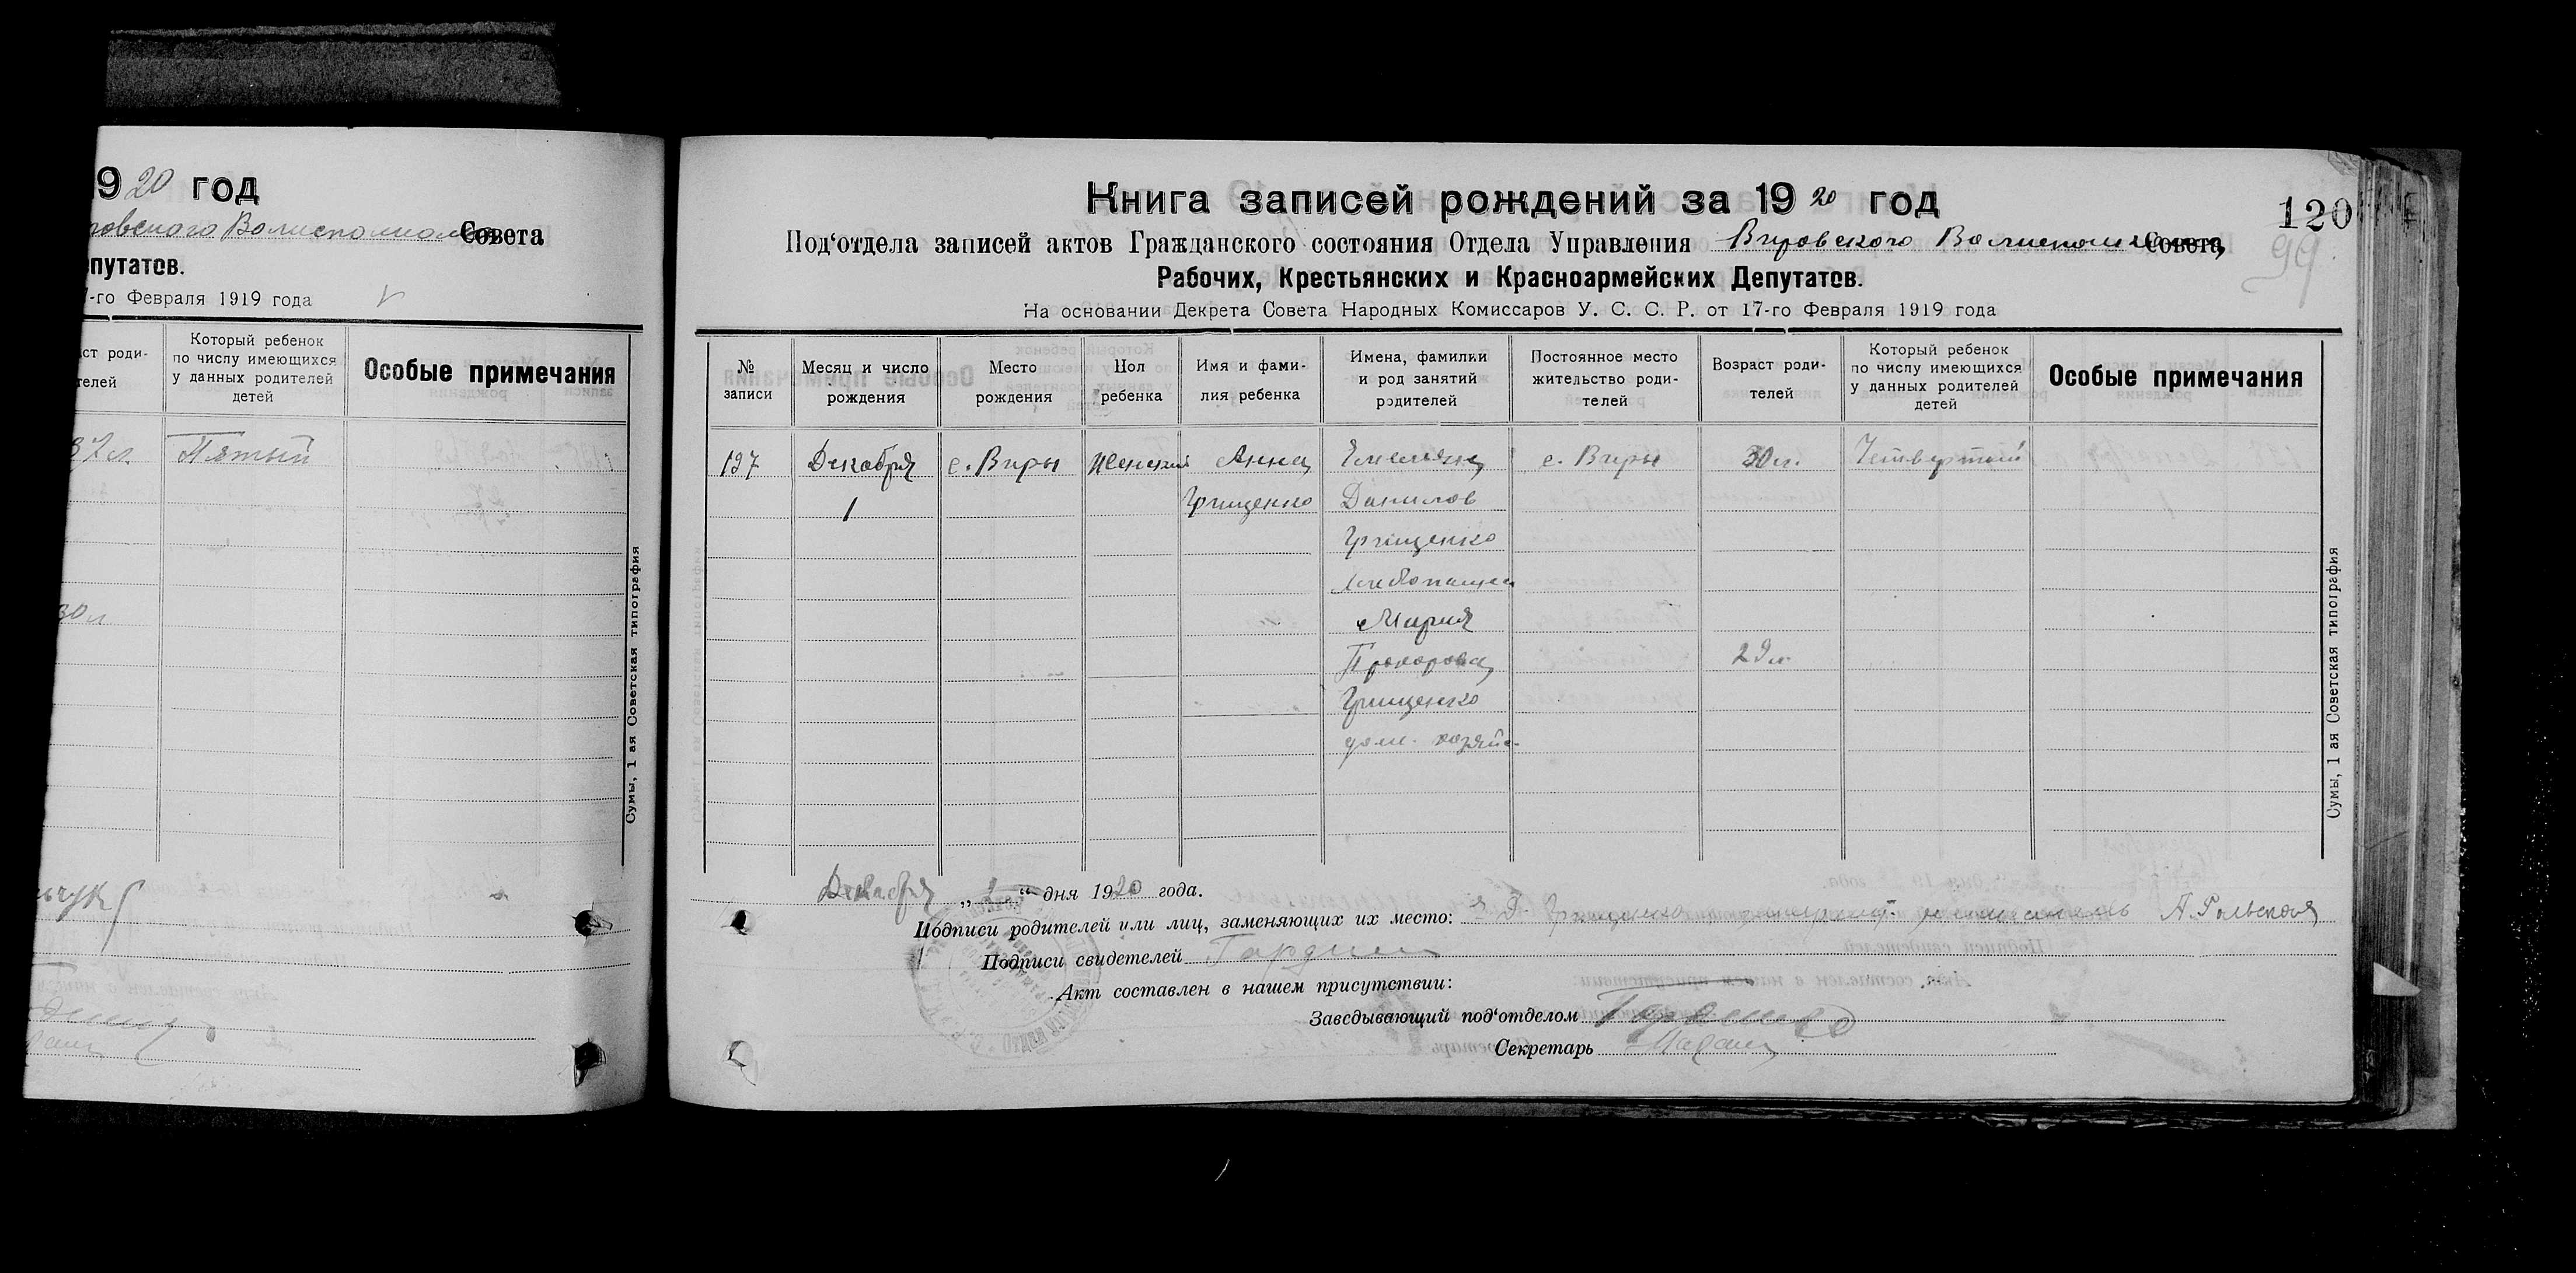 1920 год
Совета
путатов.
-го Февраля 1919 года
ст роди-
телей
Который ребенок
по числу имеющихся
у данных родителей
детей
Особые примечания
37 л. Пятый
30 л
Сумы, 1 ая Советская типография
Книга записей рождений за 1920 год
120
99
Под‘отдела записей актов Гражданского состояния Отдела Управления Вировского Волисполкома Совета
Рабочих, Крестьянских и Красноармейских Депутатов.
На основании Декрета Совета Народных Комиссаров У. С. С. Р. от 17-го Февраля 1919 года
№
записи
Месяц и число
рождения
Место
рождения
Пол
ребенка
Имя и фами-
лия ребенка
Имена, фамилии
и род занятий
родителей
Постоянное место
жительство роди-
телей
Возраст роди-
телей
Который ребенок
по числу имеющихся
у данных родителей
детей
Особые примечания
197 Декабря с. Виры Женский Анна Емельян с. Виры 30 л. Четвертый
1 Грищенко Данилов
Грищенко
хлебопашец
Мария
Прохорова 29 л.
Грищенко
дом. хозяйс.
Сумы, 1 ая Советская типография
Декабря „ 2 “ дня 1920 года.
Подписи родителей или лиц, заменяющих их место: Д. Грищенко
Подписи свидетелей
Акт составлен в нашем присутствии:
Заведывающий под‘отделом
Секретарь